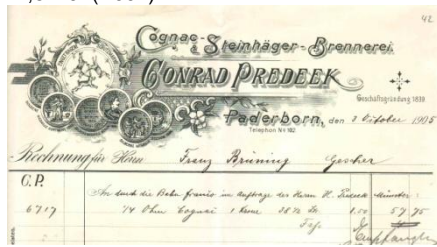 42
Cognac- & Steinhäger-Brennerei.
CONRAD PREDEEK
Geschäftsgründung 1839
Paderborn, den 3 Oktober 1905
Telephon No 192
Rechnung für Herrn Franz Brüning Gescher
C.P.
An durch die Bahn franco im Auftrage des Herrn H. Predeek Münster:
6717 1/4 Ohm Cognac 38 1/2 Ltr 1.50 57 75